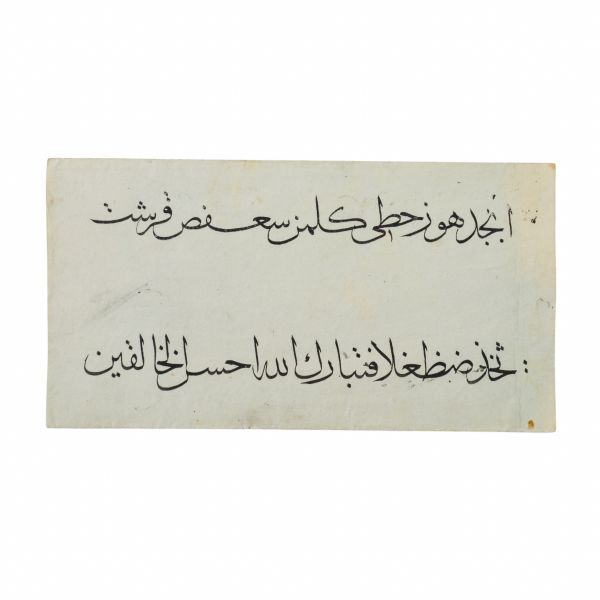 ابجد هوز حطي كلمن سعفص قرشت
ثخذ ضظغلا فتبارك الله احسن الخالقين